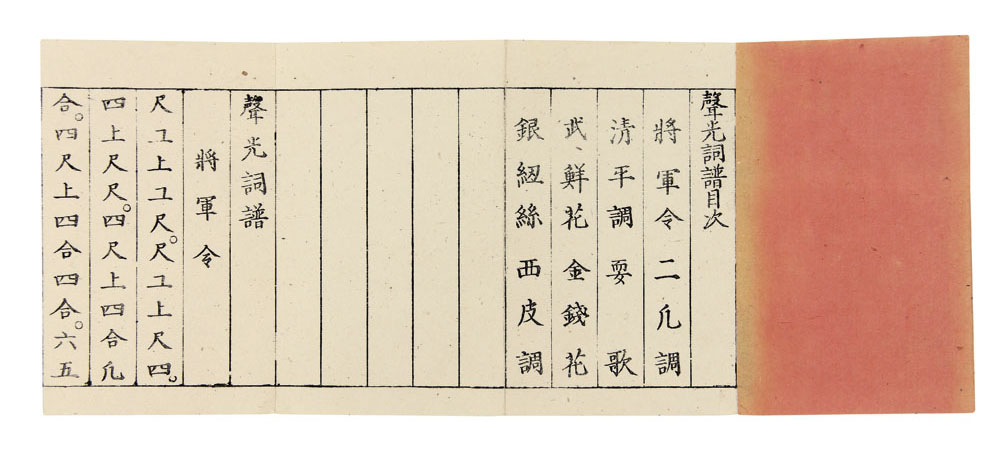 聲光詞譜目次
將軍令 二凡調
清平調 耍歌
武、鮮花 金錢花
銀紐絲 西皮調
聲光詞譜
將軍令
尺工上工尺。尺工上尺四。
四上尺尺。四尺上四合凡
合。四尺上四合四合。六五